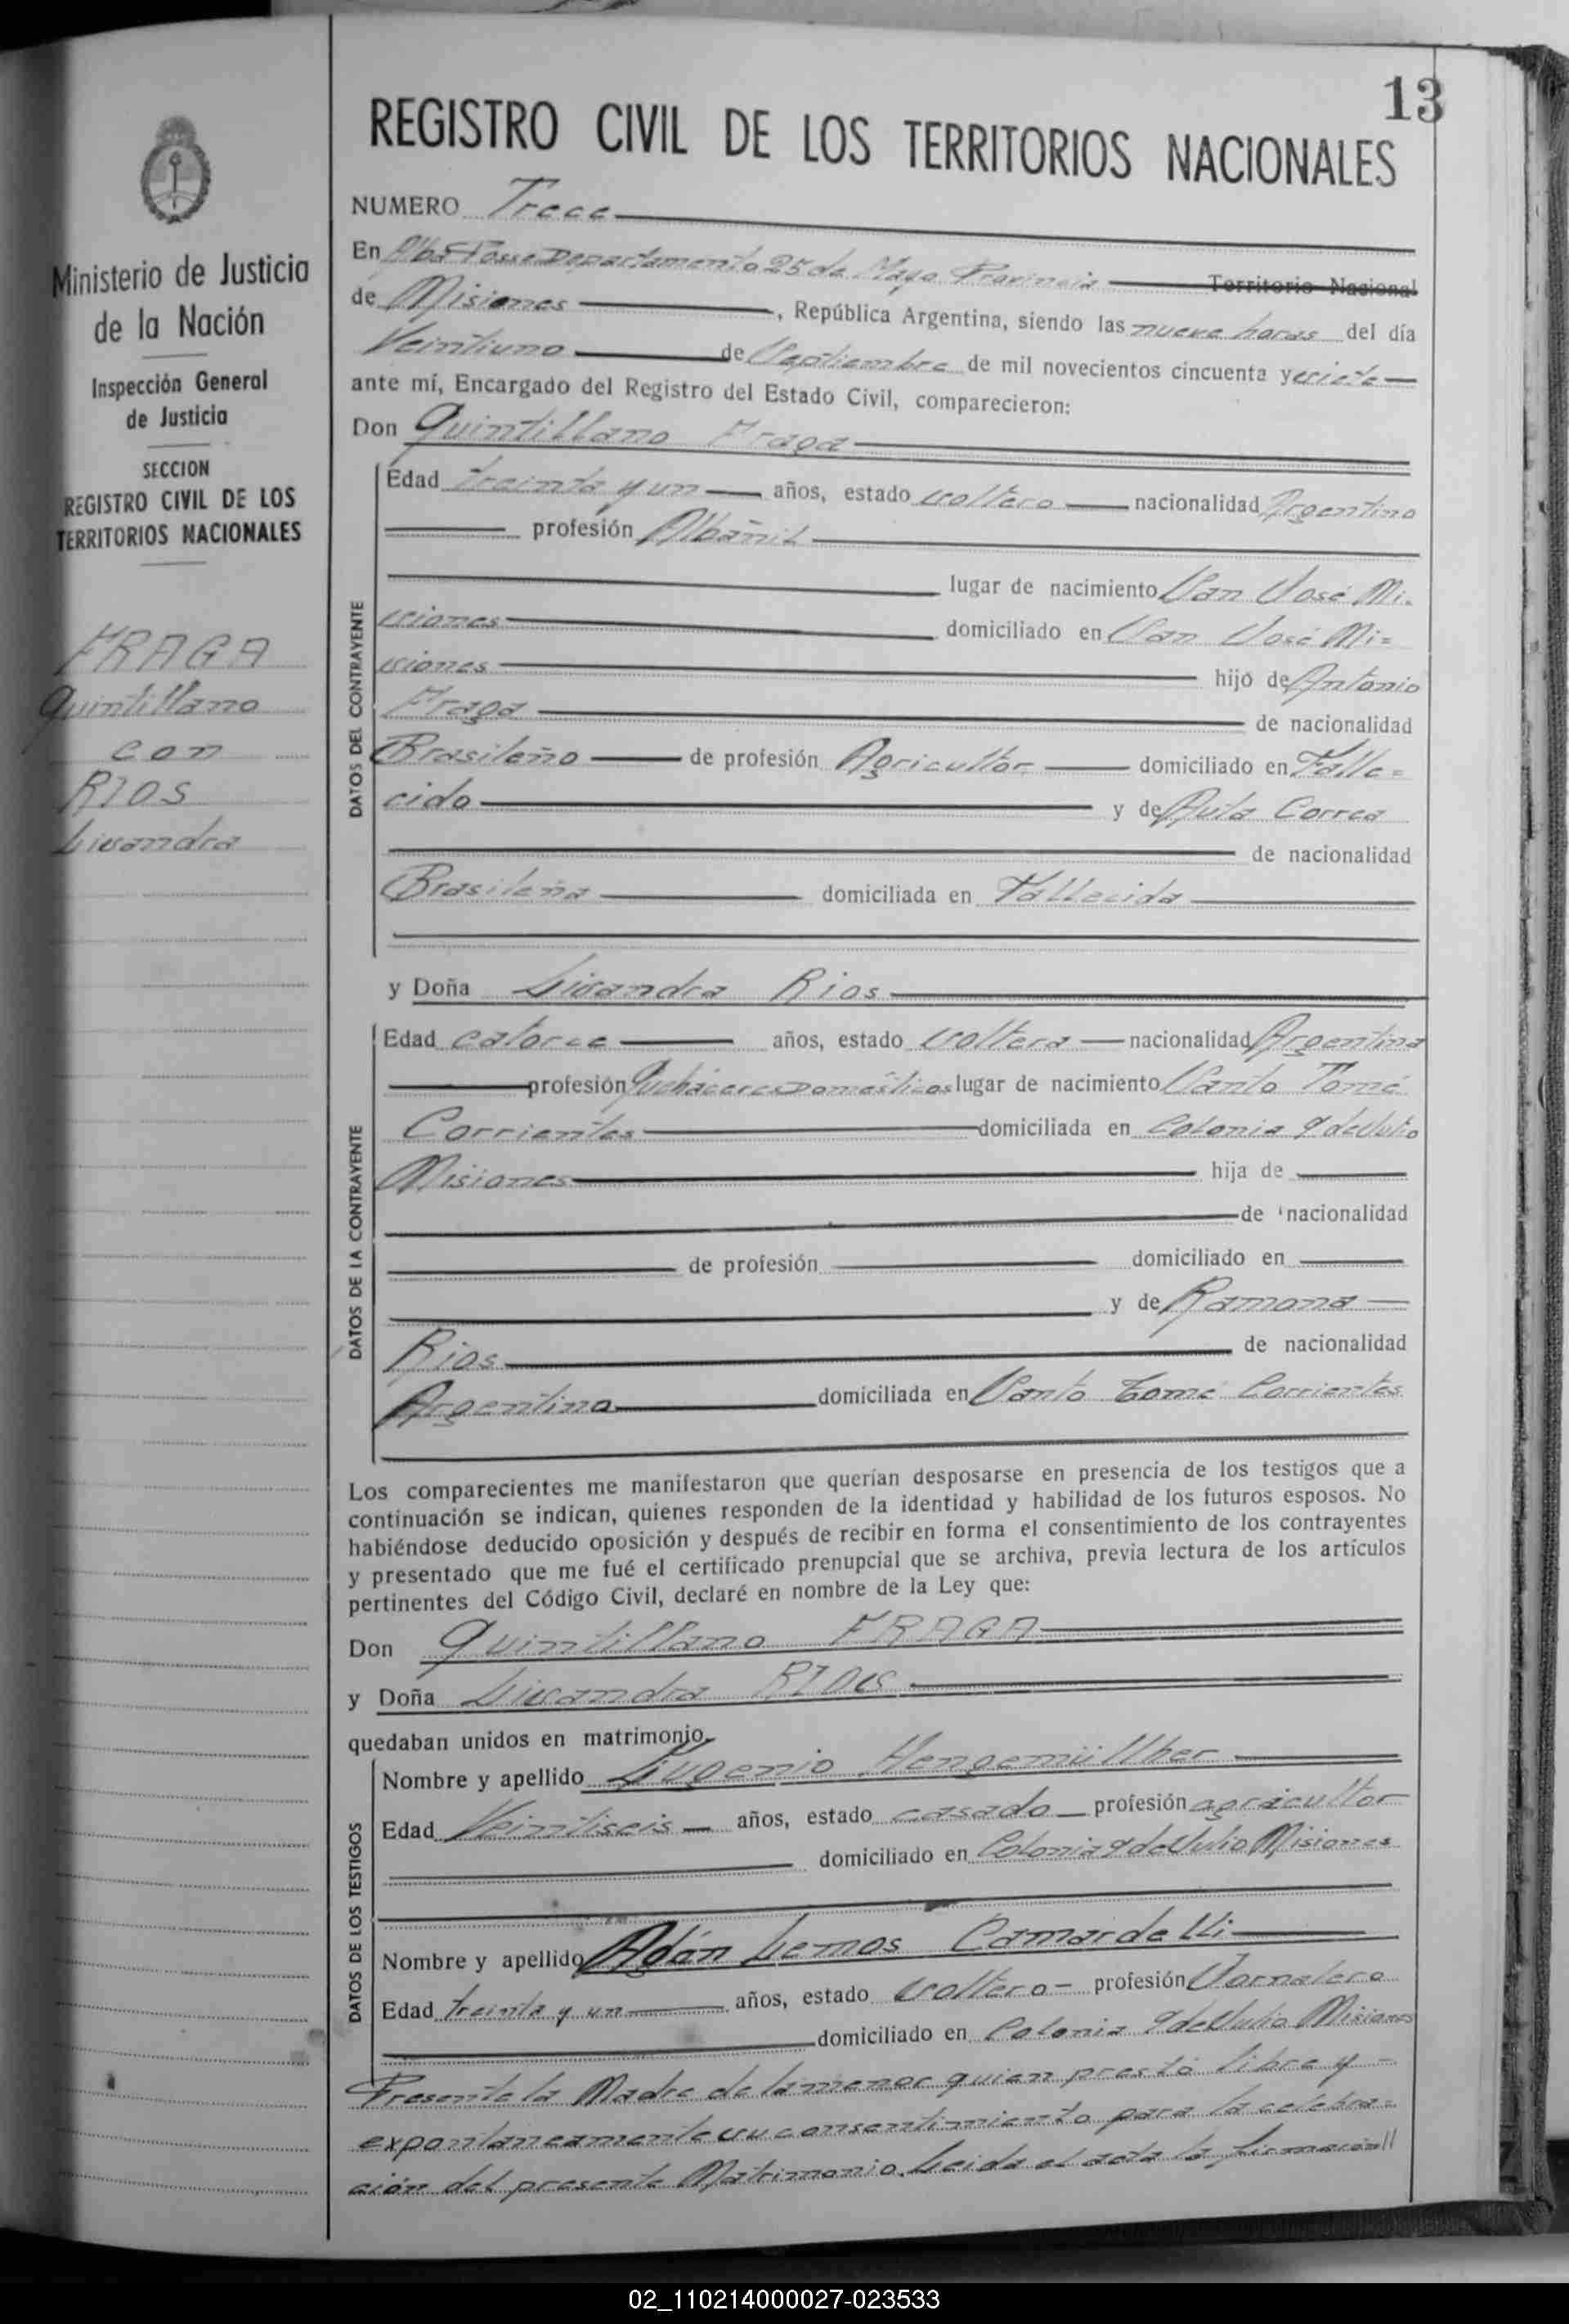 13
REGISTRO CIVIL DE LOS TERRITORIOS NACIONALES
NUMERO Trece
En Alba Posse Departamento 25 de Mayo Provincia Territorio Nacional
de Misiones, República Argentina, siendo las nueve horas del día
Veintiuno de Septiembre de mil novecientos cincuenta y siete
ante mí, Encargado del Registro del Estado Civil, comparecieron:
Don Quintillano Fraga
Edad treinta y un años, estado soltero nacionalidad Argentino
profesión Albañil
lugar de nacimiento San José Mi-
siones domiciliado en San José Mi=
siones hijo de Antonio
Fraga de nacionalidad
Brasileño de profesión Agricultor domiciliado en Falle=
cido y de Aula Correa
de nacionalidad
Brasileña domiciliada en Fallecida
DATOS DEL CONTRAYENTE
y Doña Lisandra Rios
Edad catorce años, estado soltera nacionalidad Argentina
profesión Quehaceres Domésticos lugar de nacimiento Santo Tomé
Corrientes domiciliada en Colonia 9 de Julio
Misiones hija de
de nacionalidad
de profesión domiciliado en
y de Ramona
Rios de nacionalidad
Argentina domiciliada en Santo Tomé Corrientes
DATOS DE LA CONTRAYENTE
Los comparecientes me manifestaron que querían desposarse en presencia de los testigos que a
continuación se indican, quienes responden de la identidad y habilidad de los futuros esposos. No
habiéndose deducido oposición y después de recibir en forma el consentimiento de los contrayentes
y presentado que me fué el certificado prenupcial que se archiva, previa lectura de los artículos
pertinentes del Código Civil, declaré en nombre de la Ley que:
Don Quintillano FRAGA
y Doña Lisandra RIOS
quedaban unidos en matrimonio.
Nombre y apellido Eugenio Hengemüllher
Edad Veintiseis años, estado casado profesión agricultor
domiciliado en Colonia 9 de Julio Misiones
Nombre y apellido Adán Lemos Camardelli
Edad treinta y un años, estado soltero profesión Jornalero
domiciliado en Colonia 9 de Julio Misiones
DATOS DE LOS TESTIGOS
Presente la Madre de la menor quien prestó libre y
expontaneamente su consentimiento para la celebra=
ción del presente Matrimonio. Leida el acta la firmación//
Ministerio de Justicia
de la Nación
Inspección General
de Justicia
SECCION
REGISTRO CIVIL DE LOS
TERRITORIOS NACIONALES
FRAGA
Quintillano
con
RIOS
Lisandra
02_110214000027-023533